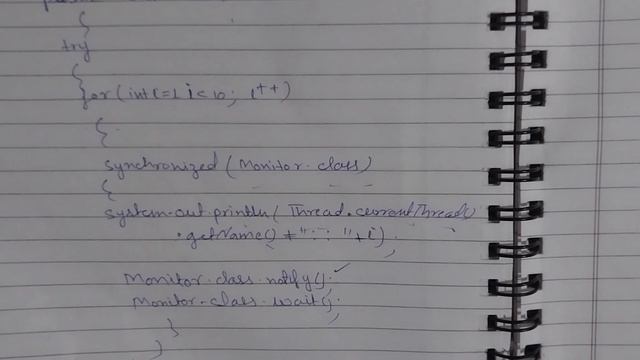 {
try
{
for(int i=1 i<10; i++)
{
synchronized (Monitor.class)
{
system.out.println( Thread.currentThread()
.getName() + ":: "+i);
Monitor.class.notify();
Monitor.class.wait();
}
}